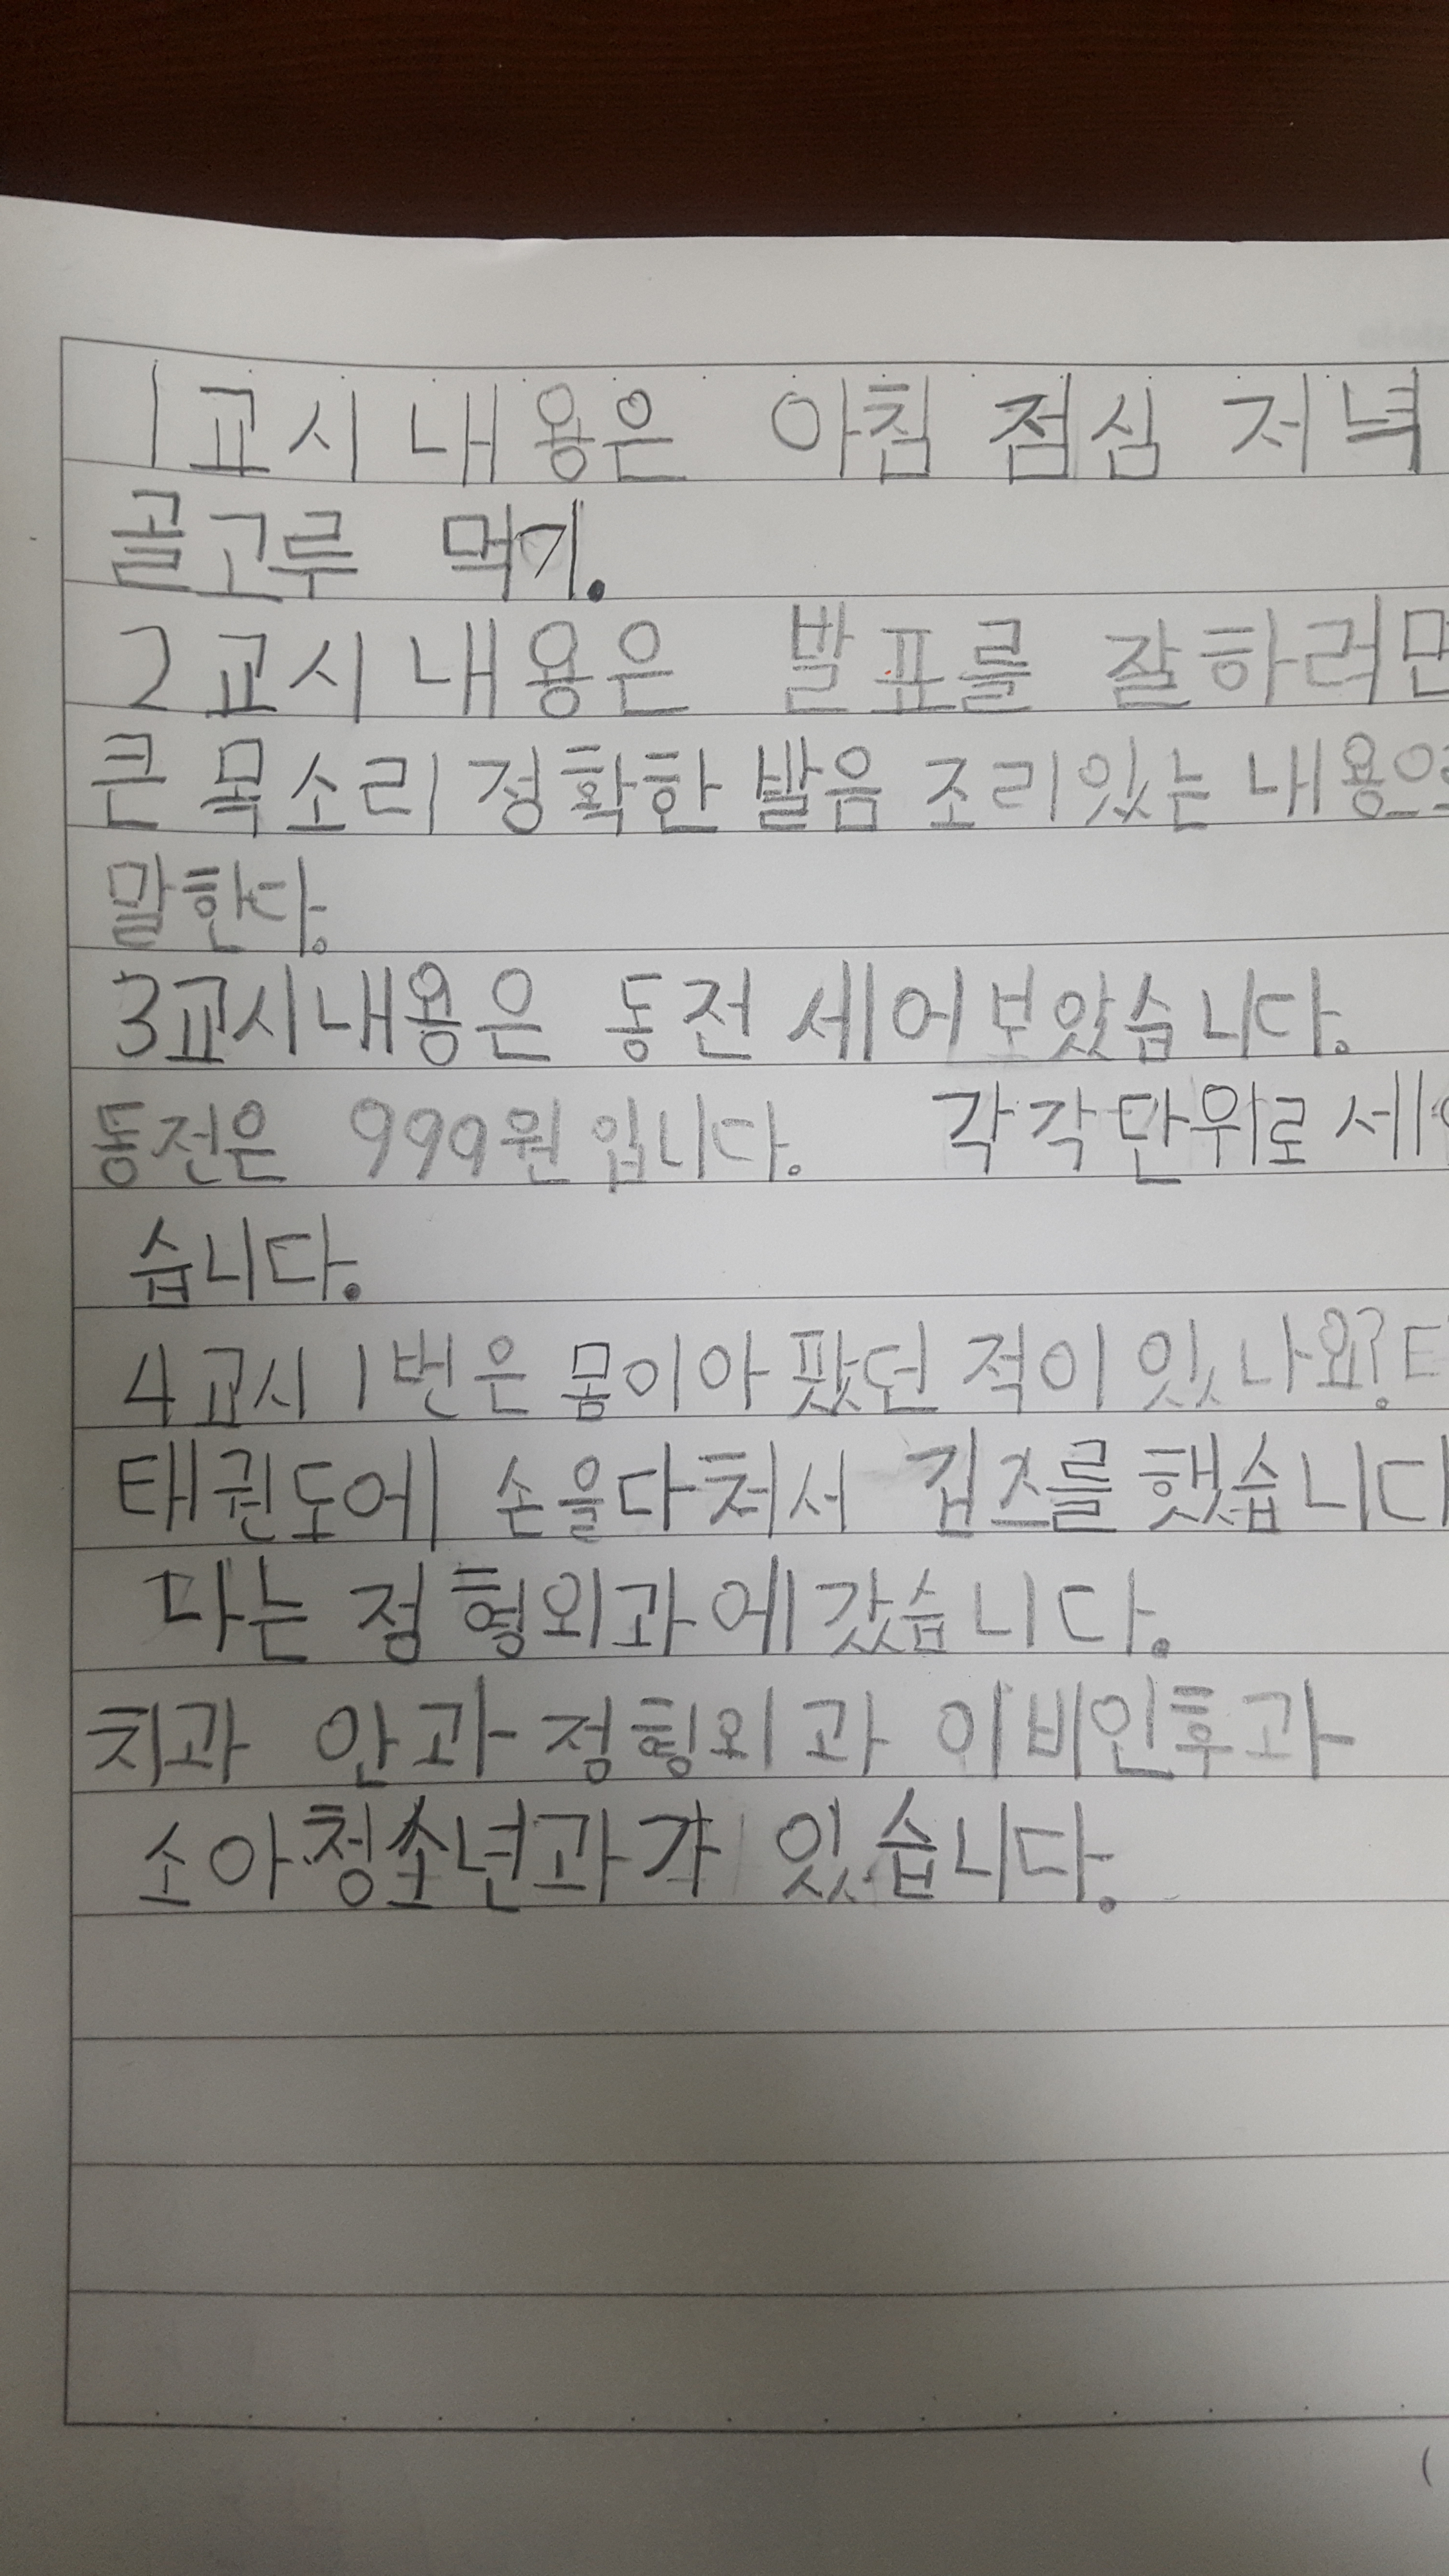 1교시 내용은 아침 점심 저녁
골고루 먹기.
2교시 내용은 발표를 잘하려면
큰 목소리 정확한 발음 조리있는 내용으
말한다.
3교시내용은 동전 세어보았습니다.
동전은 999원 입니다. 각각 단위로 세
습니다.
4교시 1번은 몸이아팠던 적이 있나요?
태권도에 손을다처서 깁스를 했습니다
나는 정형외과에 갔습니다.
치과 안과 정형외과 이비인후과
소아청소년과가 있습니다.